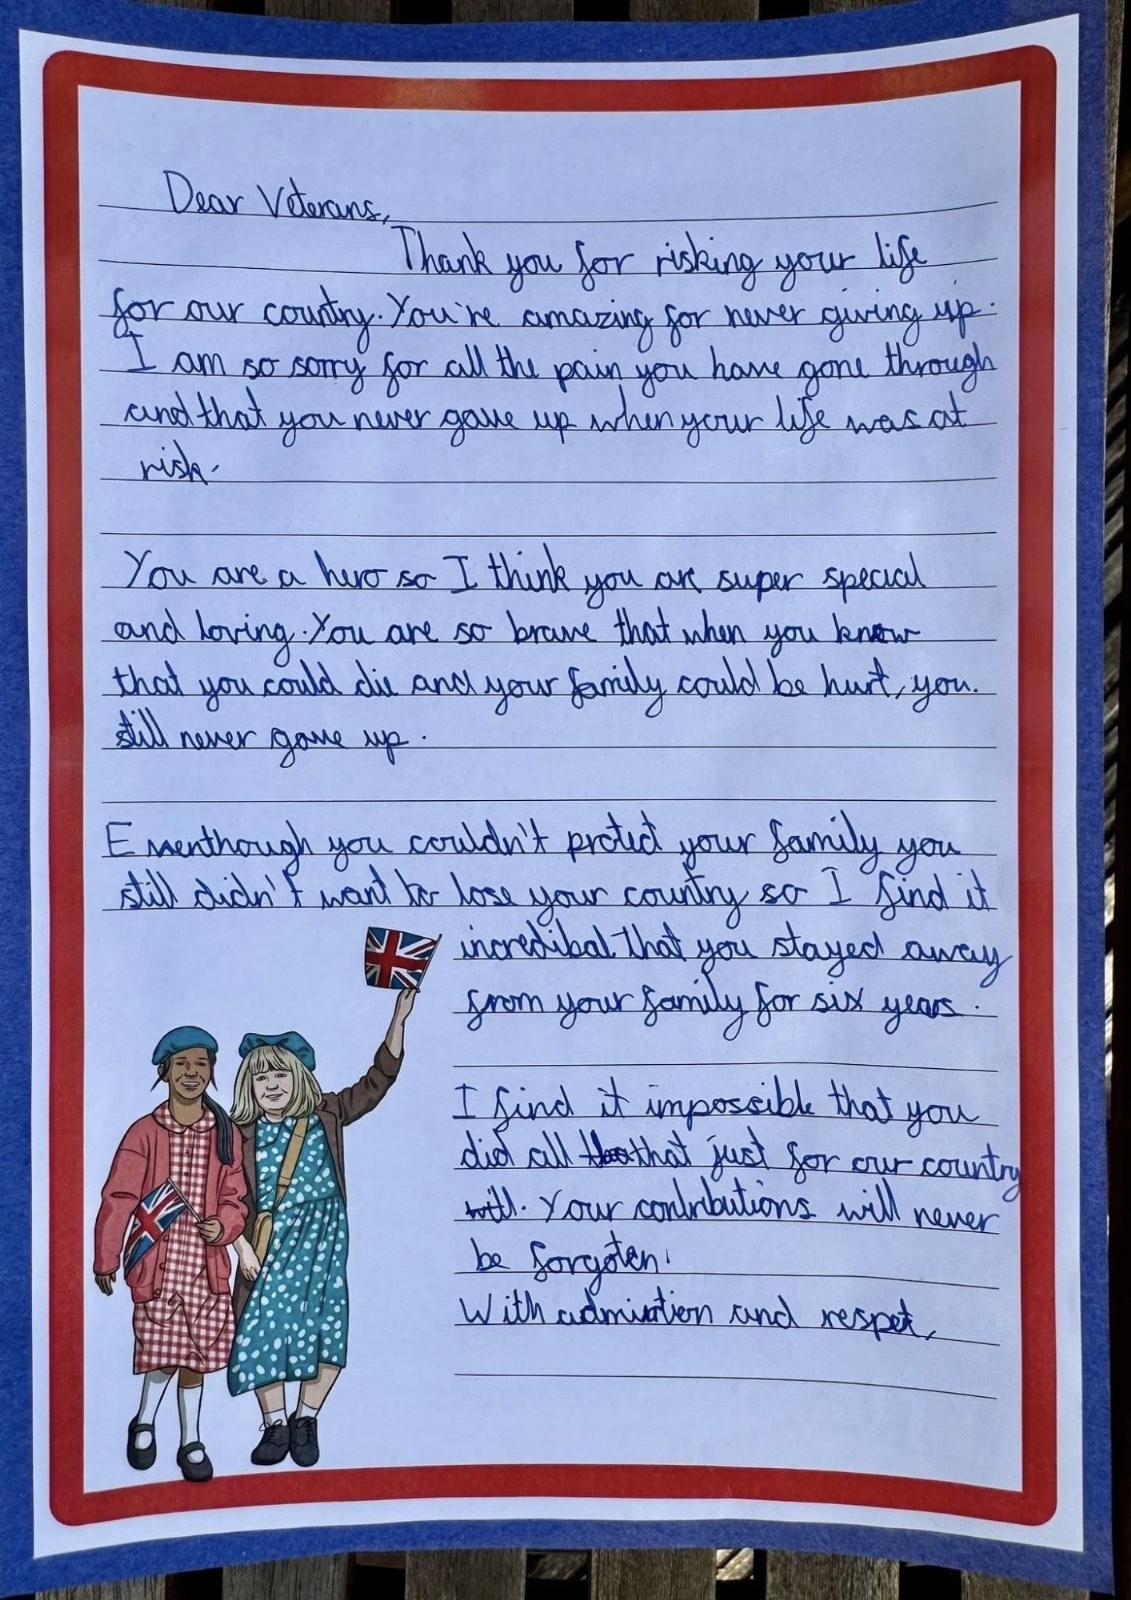 Dear Veterans,
Thank you for risking your life
for our country. You're amazing for never giving up.
I am so sorry for all the pain you have gone through
and that you never gave up when your life was at
risk.
You are a hero so I think you are super special
and loving. You are so brave that when you know
that you could die and your family could be hurt, you.
still never gave up.
Eventhough you couldn't protect your family you
still didn't want to lose your country so I find it
incredibal that you stayed away
from your family for six years.
I find it impossible that you
did all that just for our country
will. Your contributions will never
be forgoten.
With admiration and respet,